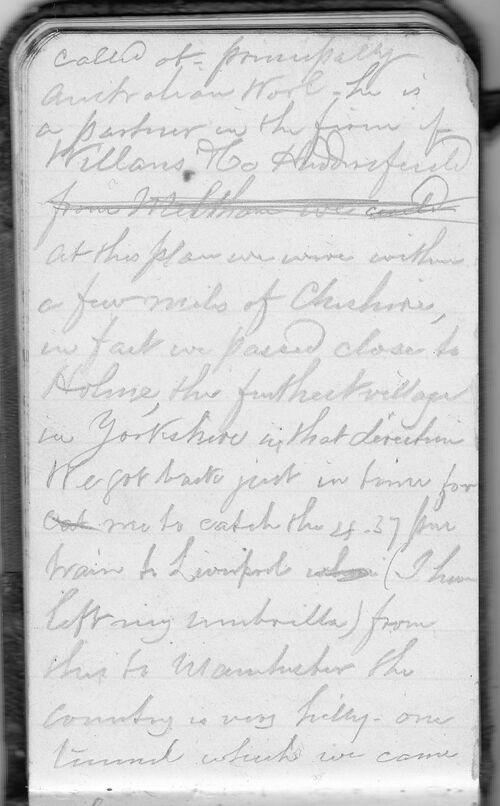 called at - principally
Australian Wool - he is
a partner in the firm of
Willans & Co Huddersfield
from Meltham we could
At this place we were within
a few miles of Cheshire,
in fact we passed close to
Holme, the furthest village
in Yorkshire in that direction
We got back just in time for
me to catch the 4.37 pm
train to Liverpool (I have
left my umbrella) from
this to Manchester the
country is very hilly - one
tunnel which we came